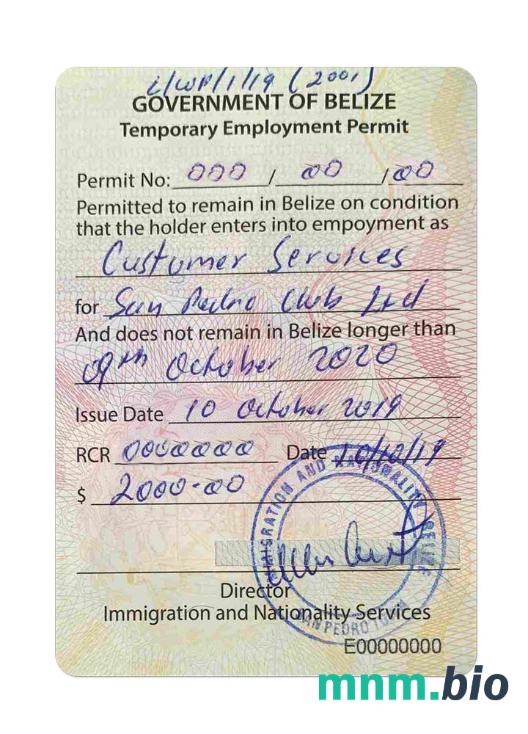 i/WP/1/19 (2001)
GOVERNMENT OF BELIZE
Temporary Employment Permit
Permit No: 000 / 00 / 00
Permitted to remain in Belize on condition
that the holder enters into empoyment as
Customer Services
for San Pedro Club Ltd
And does not remain in Belize longer than
09th October 2020
Issue Date 10 October 2019
RCR 0000000 Date 10/10/19
$ 2000-00
IMMIGRATION AND NATIONALITY BELIZE
Director
Immigration and Nationality Services
SAN PEDRO
E00000000
mnm.bio